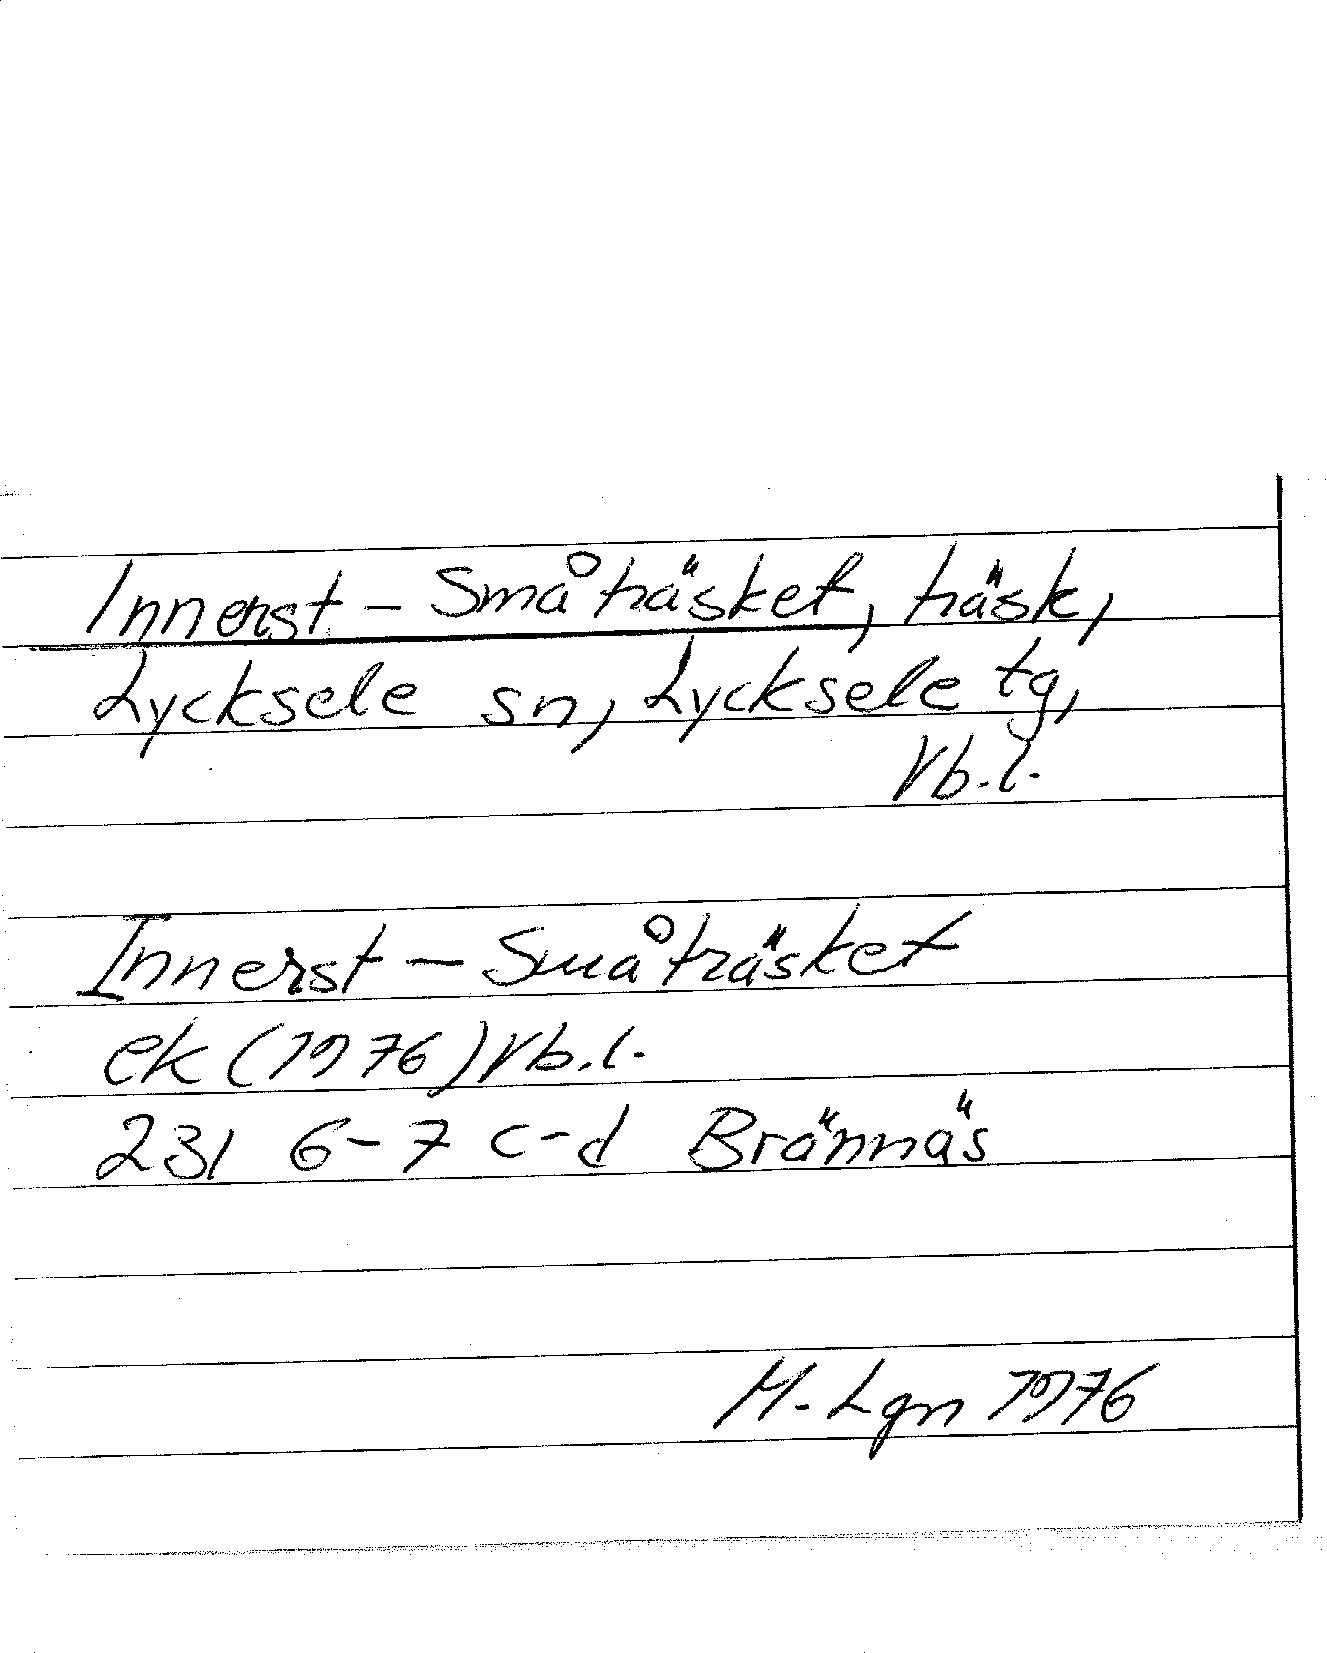 Innerst-Småträsket, träsk,
Lycksele sn, Lycksele tg,
Vb.l.
Innerst-Småträsket
ek (1976) Vb.l.
231 6-7 c-d Brännäs
M. Lgn 1976